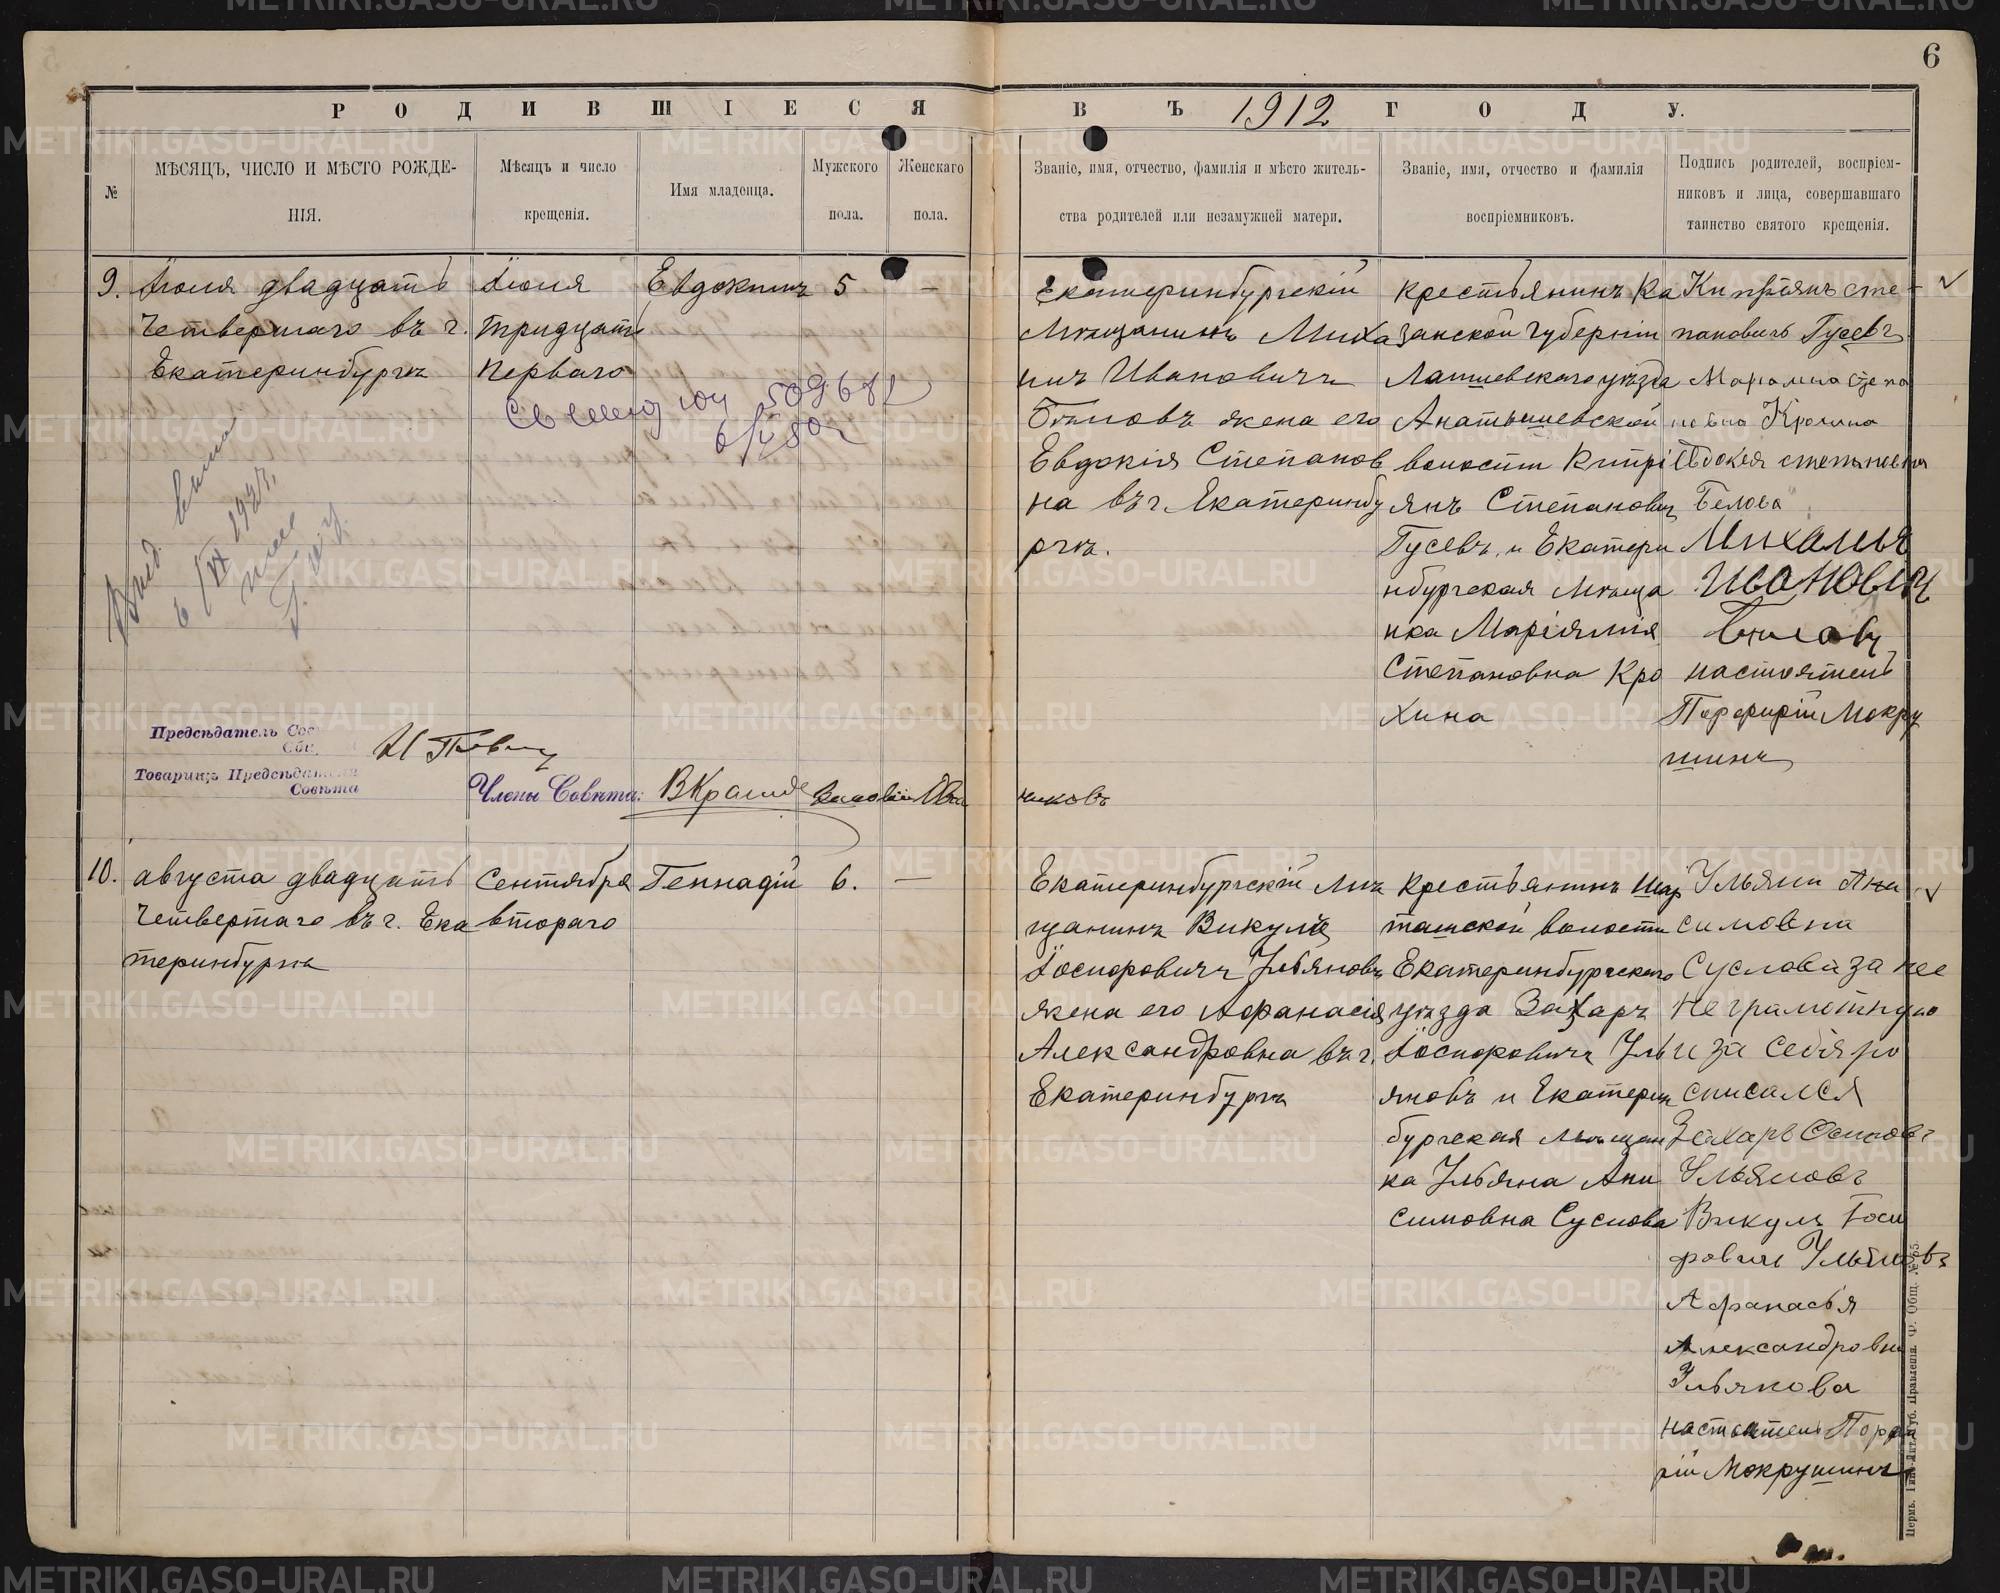 6
РОДИВШІЕСЯ ВЪ 1912 ГОДУ.
№
МѢСЯЦЪ, ЧИСЛО И МѢСТО РОЖДЕ-
НІЯ.
Мѣсяцъ и число
крещенія.
Имя младенца.
Мужского
пола.
Женскаго
пола.
Званіе, имя, отчество, фамилія и мѣсто житель-
ства родителей или незамужней матери.
Званіе, имя, отчество и фамилія
воспріемниковъ.
Подпись родителей, воспріем-
никовъ и лица, совершавшаго
таинство святого крещенія.
9.
Іюля двадцать
Четвертаго въ г.
Екатеринбургѣ
Іюля
тридцать
перваго
Евдокимъ
5
—
Екатеринбургскій
Мѣщанинъ Миха
илъ Ивановичъ
Бѣловъ жена его
Евдокія Степанов
на въ г. Екатеринбу
ргѣ.
крестьянинъ Ка
занской губерніи
Лаишевскаго уѣзда
волости Кипрі
янъ Степанович
Гусевъ и Екатери
нбургская Мѣща
нка Маріямія
Степановна Кро
хина
Кипріянъ сте-
пановичъ Гусевъ
Евдокея степановна
Белова
Михаилъ
Ивановичъ
Бѣловъ
настоятель
Порфирій Мокру
шинъ
509681
6/IX 1927
Предсѣдатель Сов
Товарищъ Предсѣдателя
Совѣта
Члены Совѣта:
никовъ
10.
августа двадцать
Четвертаго въ г. Ека
теринбургѣ
Сентября
втораго
Геннадій
6.
—
Екатеринбургскій Мѣ
щанинъ Викулъ
Іосифовичъ Ульяновъ
жена его Афанасія
Александровна въ г.
Екатеринбургѣ
крестьянинъ Шар
ташской волости
Екатеринбургскаго
уѣзда Захаръ
Іосифовичъ Уль
яновъ и Екатерин
бургская мѣщан
ка Ульяна Ани
симовна Суслова
Ульяни Ани
симовни
Суслова за нее
неграмотную
и за себя ро
списался
Захаръ Осиповъ
Ульяновъ
Викулъ Іоси
фовичъ Ульяновъ
Афанасья
Александровна
Ульянова
настоятель Порфи
рій Мокрушинъ
METRIKI.GASO-URAL.RU